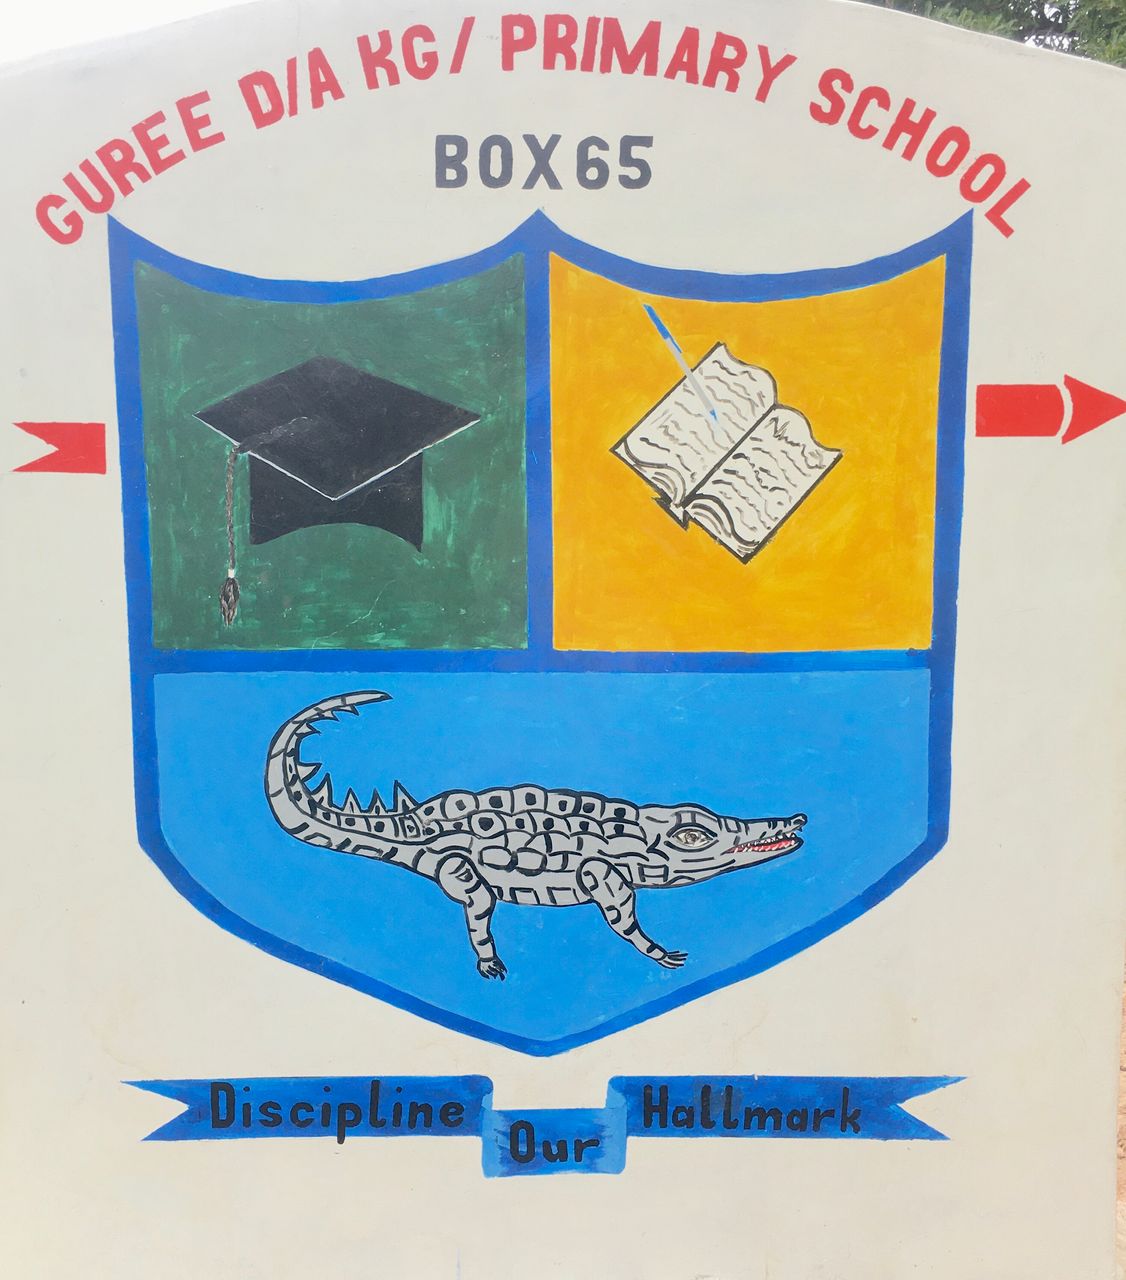 GUREE D/A KG/ PRIMARY SCHOOL
BOX 65
Discipline Our Hallmark